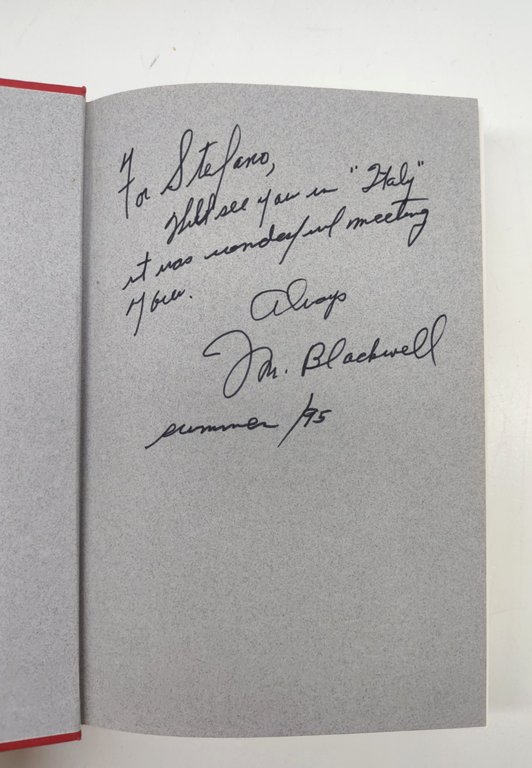 For Stefano,
Will see you in "Italy"
it was wonderful meeting
you.
Always
M. Blackwell
summer /95